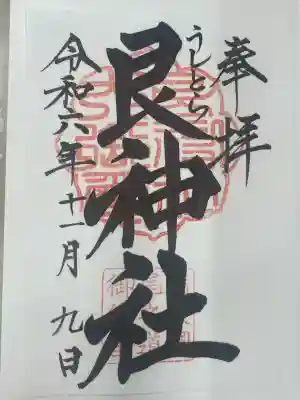 奉拝
うしとら
艮神社
令和六年十一月九日